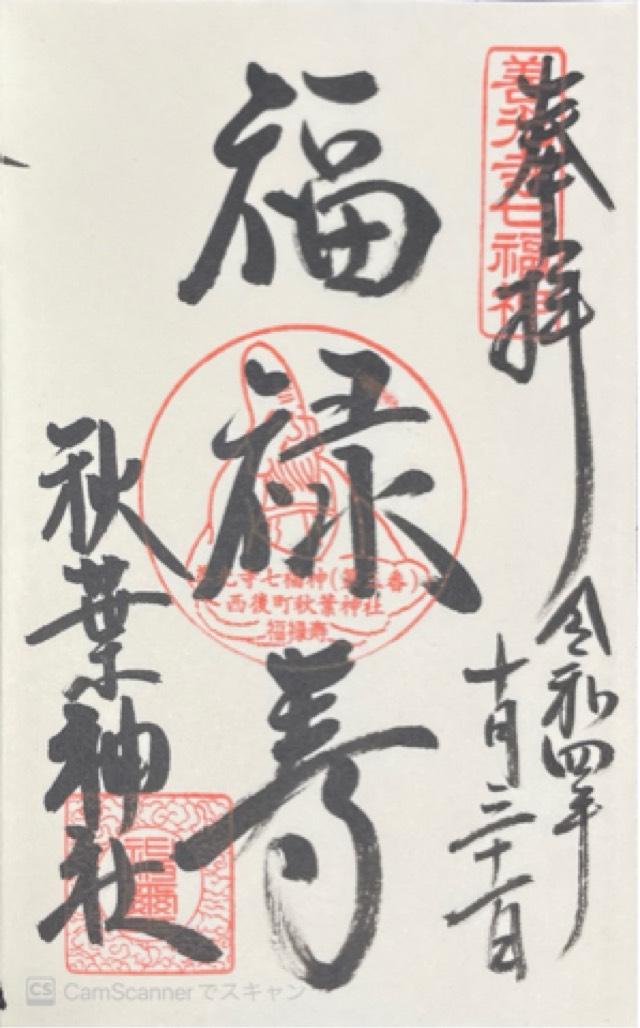 奉拝
善光寺七福神
令和四年
十月三十一日
福禄寿
善光寺七福神(第三番)
西後町秋葉神社
福禄寿
秋葉神社
CS CamScannerでスキャン